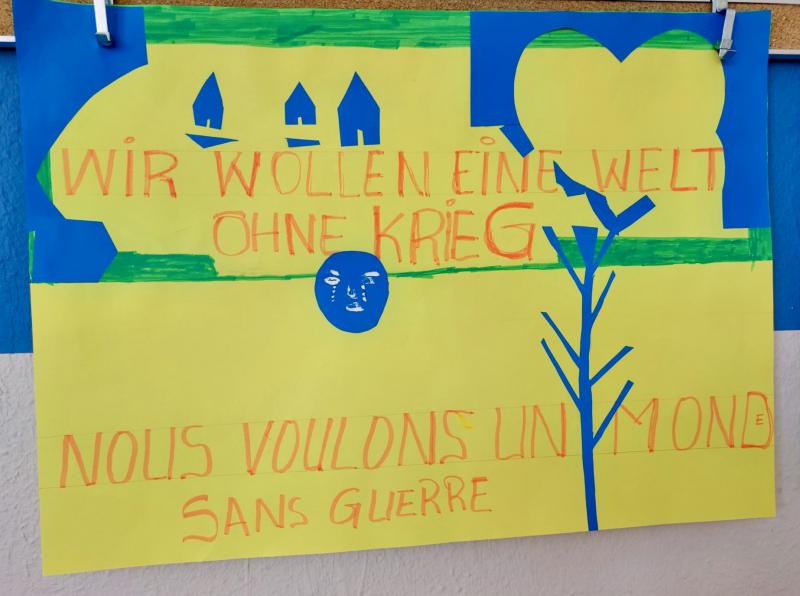 WiR WOLLEN EiNE WELT
OHNE KRiEG
NOUS VOULONS UN MONDE
SANS GUERRE